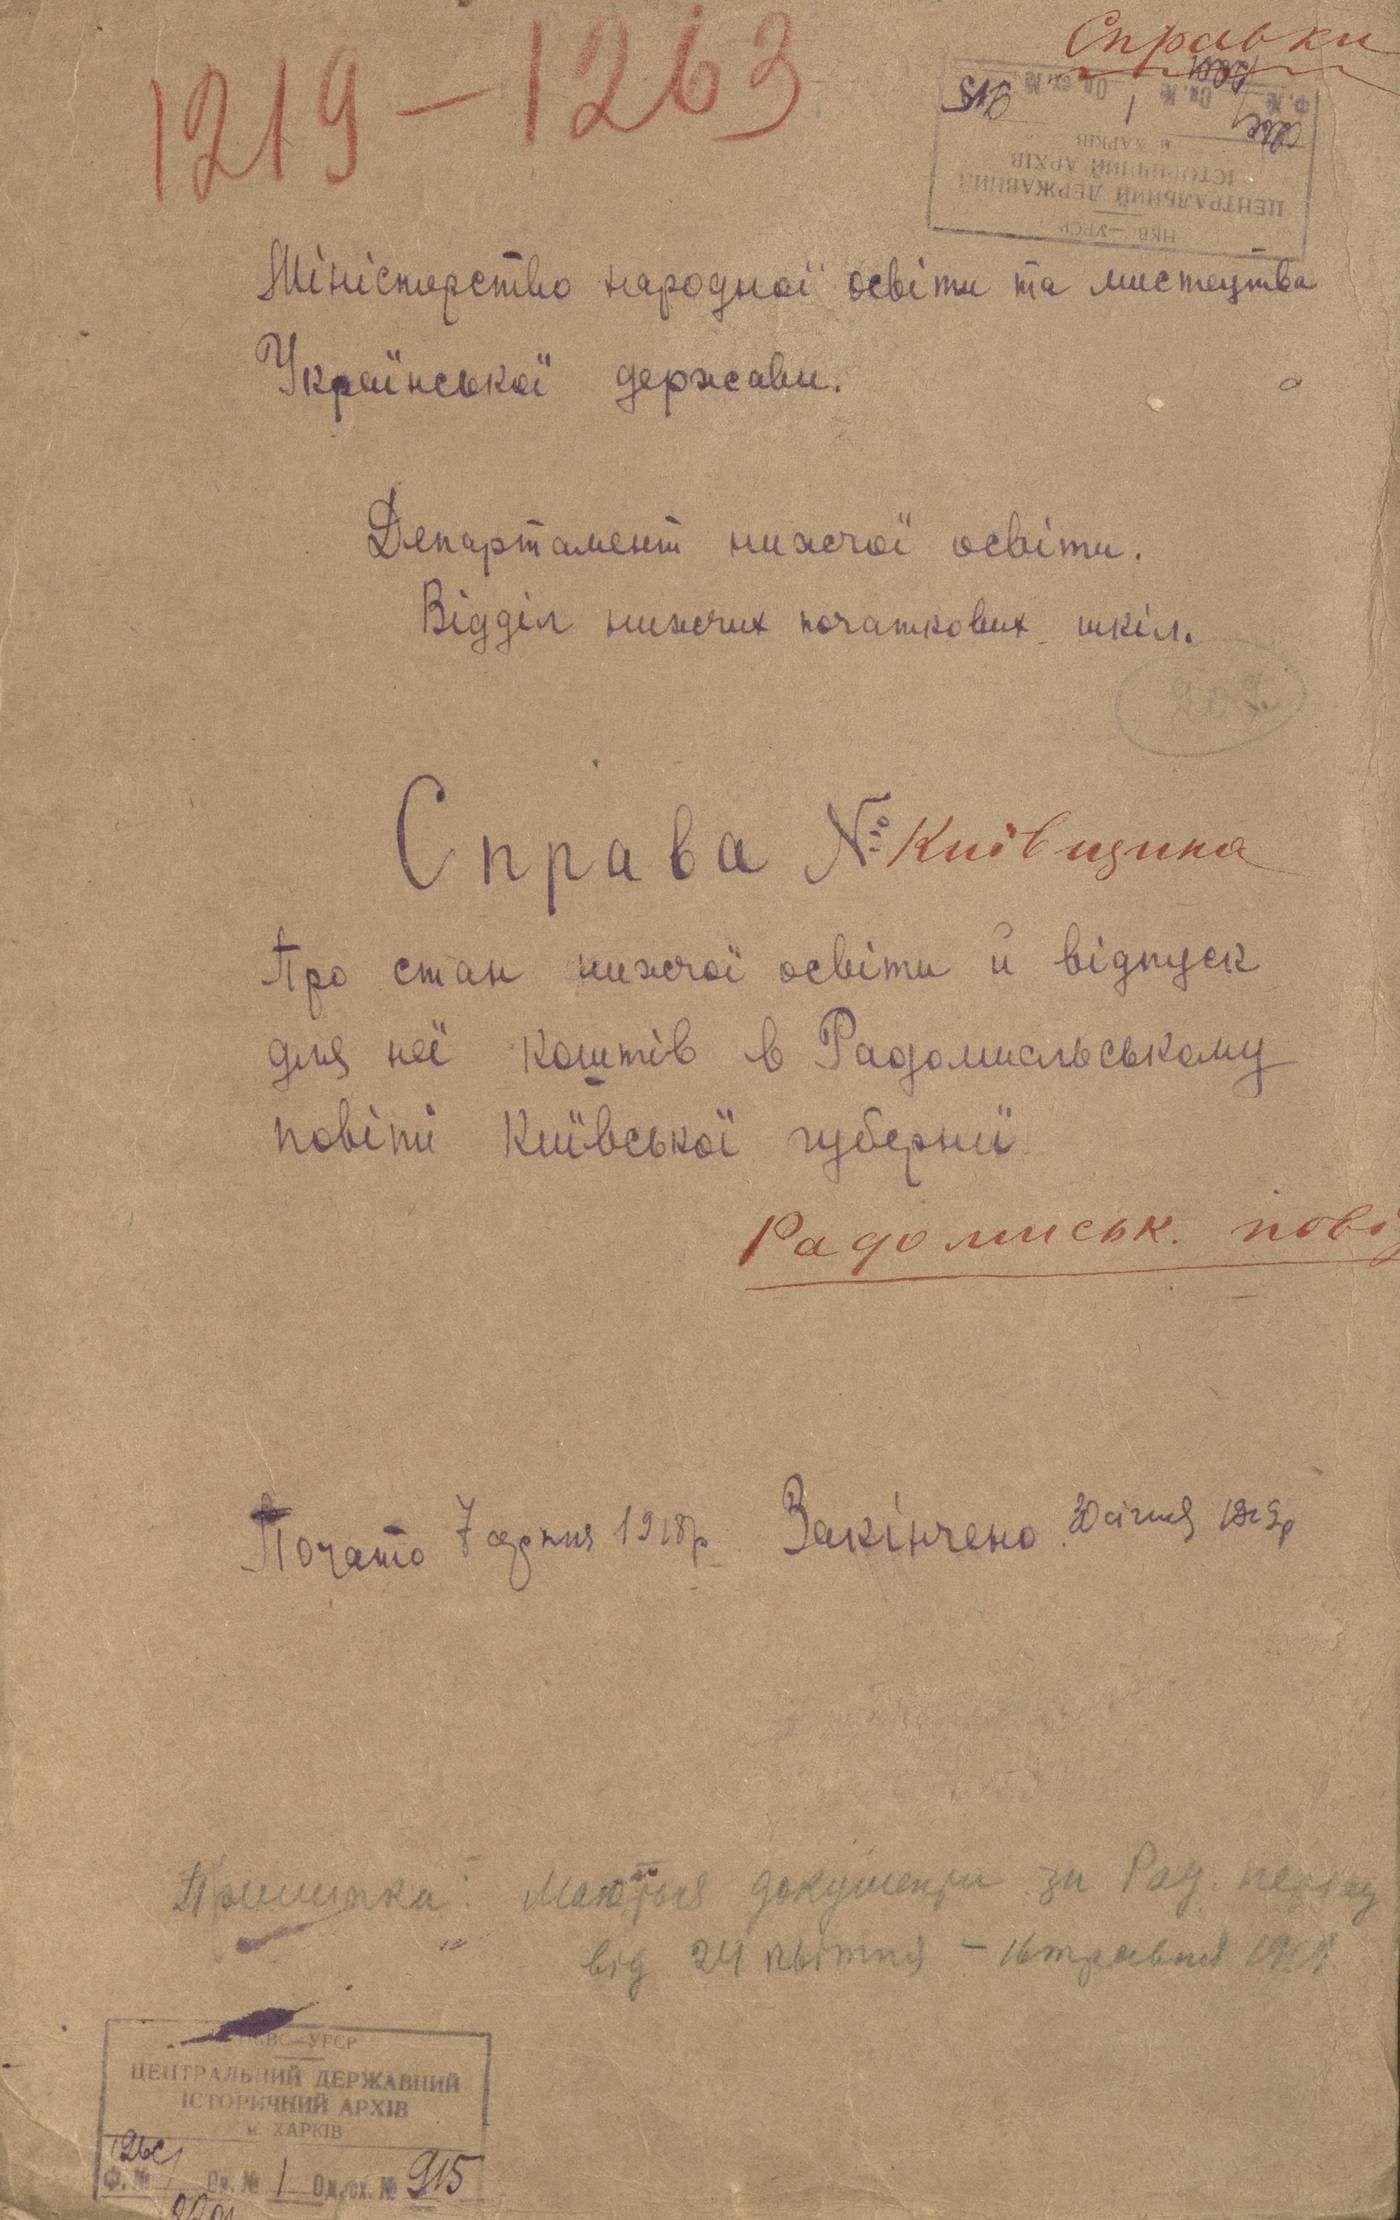 1219-1263
Справки
НКВС—УРСР
ЦЕНТРАЛЬНИЙ ДЕРЖАВНИЙ
ІСТОРИЧНИЙ АРХІВ
м. ХАРКІВ
Ф. № Оп. № 1 Од. сх. № 915
Міністерство народної освіти та мистецтва
Української держави.
Департамент нижчої освіти.
Відділ нижчих початкових шкіл.
Справа № Київщина
Про стан нижчої освіти й відпуск
для неї коштів в Радомисльському
повіті Київської губернії
Радомиськ. пові
Почато 7 серпня 1918р Закінчено 30 січня 1919р
Примітка: Маються документи за Рад. період
від 24 квітня – 16 травня
НКВС—УРСР
ЦЕНТРАЛЬНИЙ ДЕРЖАВНИЙ
ІСТОРИЧНИЙ АРХІВ
м. ХАРКІВ
Ф. № Оп. № 1 Од. сх. № 915